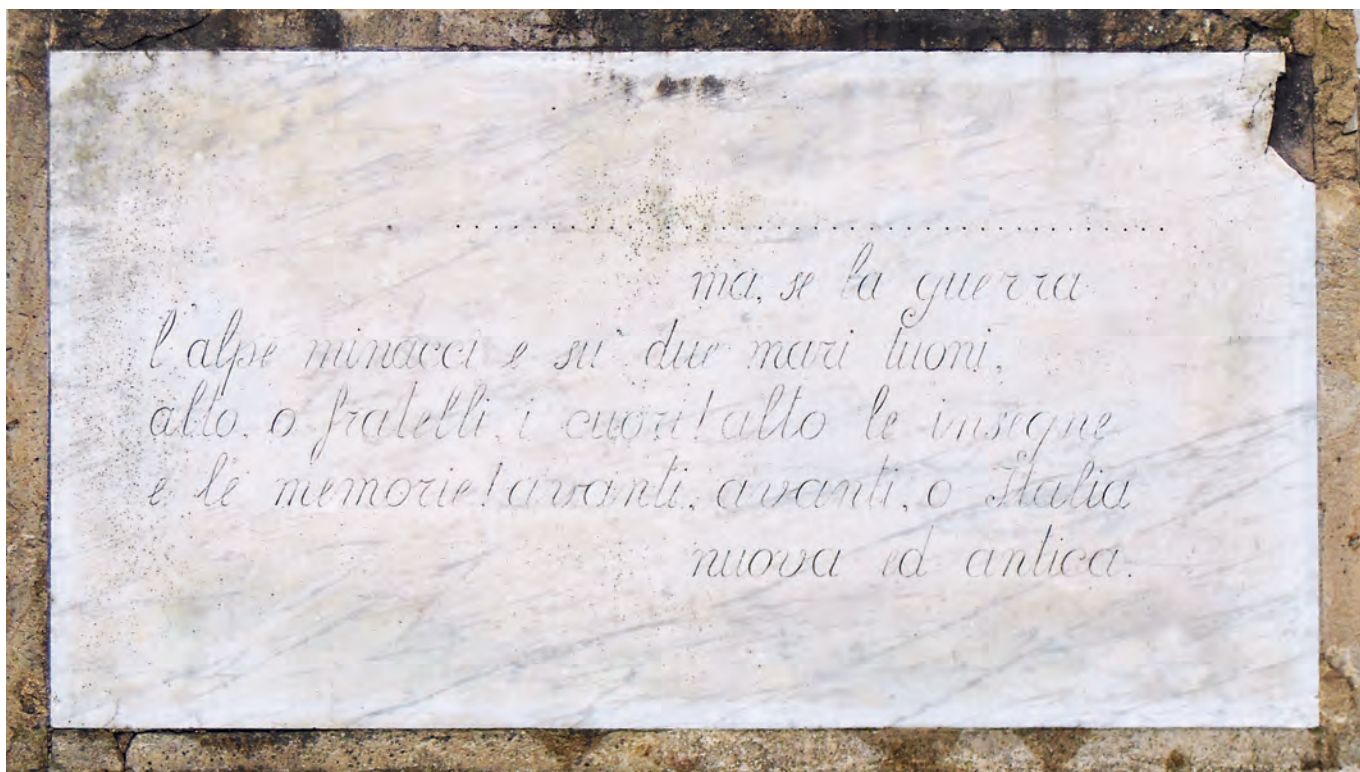 ..............................................................
ma, se la guerra
l'alpe minacci e su' due mari tuoni,
alto, o fratelli, i cuori! alto le insegne
e le memorie! avanti, avanti, o Italia
nuova ed antica.